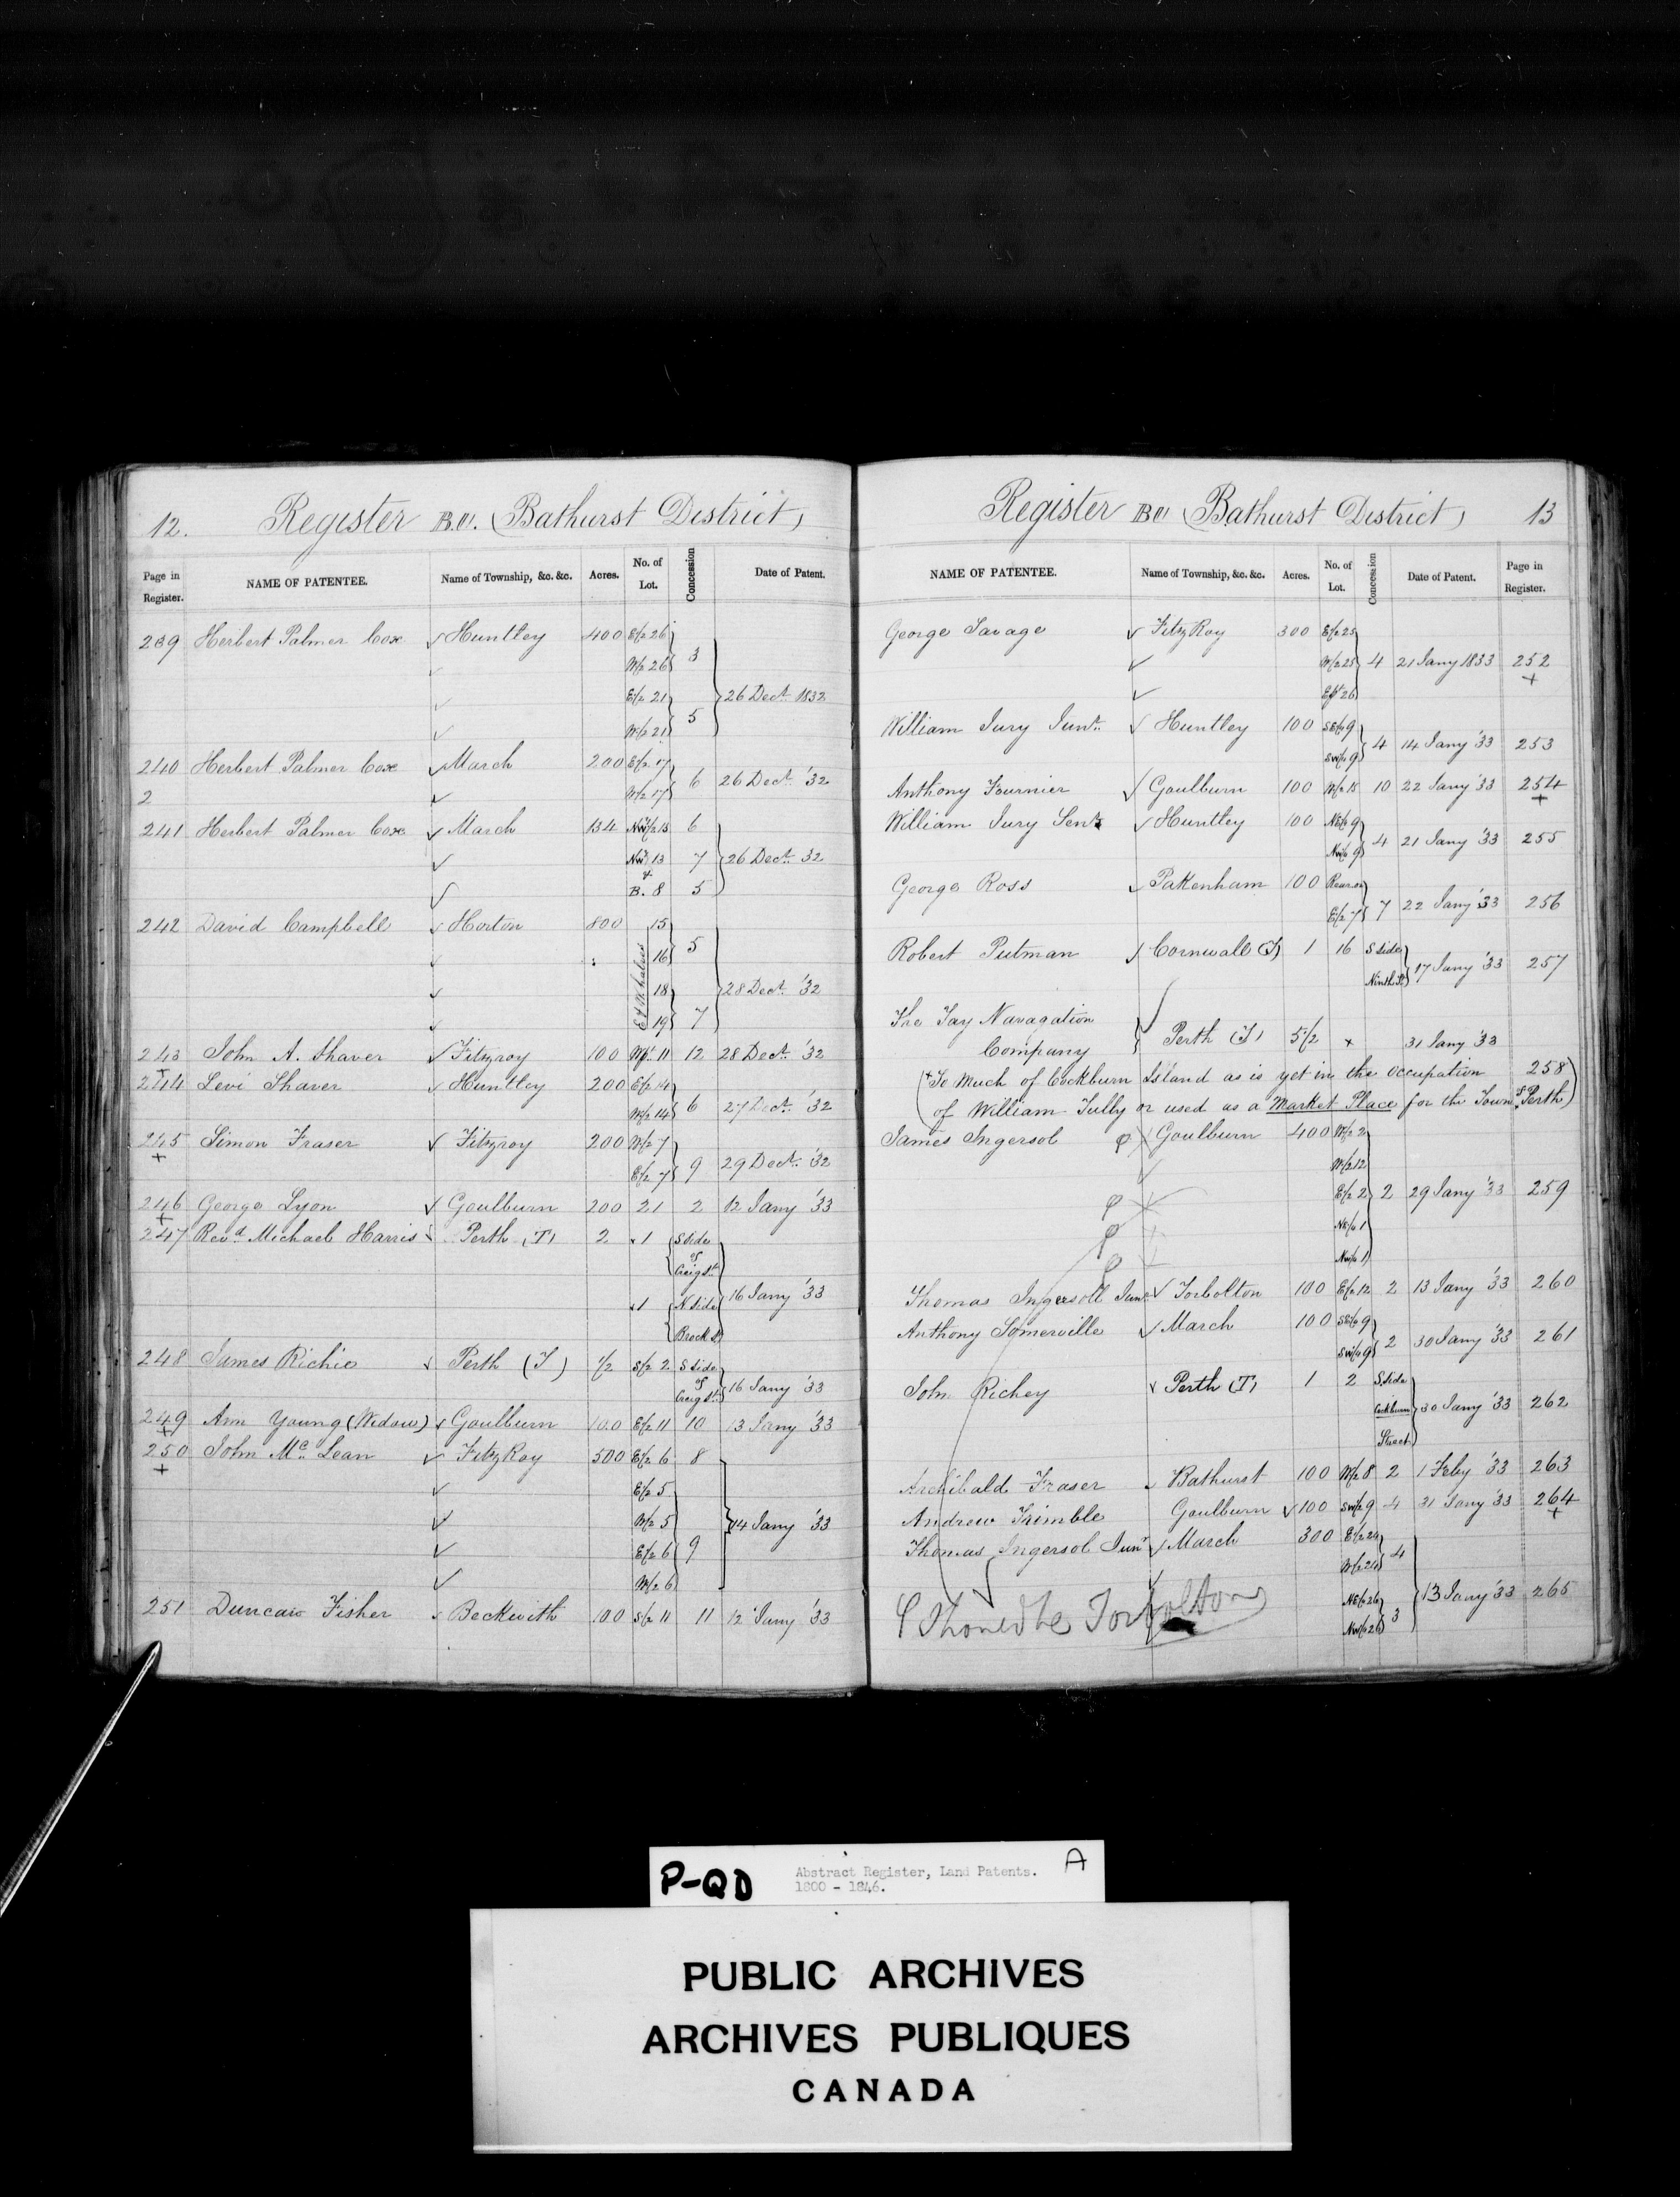 12. Register B.C. (Bathurst District)
Page in Register. NAME OF PATENTEE. Name of Township, &c. &c. Acres. No. of Lot. Concession Date of Patent.
239 Herbert Palmer Cox ✓ Huntley 400 E½ 26
✓ W½ 26 } 3
✓ E½ 21 } 26 Decr. 1832
✓ W½ 21 } 5
240 Herbert Palmer Cox ✓ March 200 E½ 17
2 ✓ W½ 17 } 6 26 Decr. '32
241 Herbert Palmer Cox ✓ March 134 13 6
✓ 13 7 } 26 Decr. 32
✓ & B. 8 5
242 David Campbell ✓ Horton 800 15
✓ 16 } 5
✓ E & W halves 18 } 28 Decr. '32
✓ 19 } 7
243 John A. Shaver ✓ Fitzroy 100 W½ 11 12 28 Decr. '32
+
244 Levi Shaver ✓ Huntley 200 E½ 14
W½ 14 } 6 27 Decr. '32
245 Simon Fraser ✓ Fitzroy 200 W½ 7
+ E½ 7 } 9 29 Decr. '32
246 George Lyon ✓ Goulburn 200 21 2 12 Jany '33
+
247 Revd. Michael Harris ✓ Perth (T) 2 1 S side
of
Craig St.
1 N side } 16 Jany '33
Brock St
248 James Richie ✓ Perth (T) ½ S½ 2 S side
of
Craig St. } 16 Jany '33
249 Ann Young (Widow) ✓ Goulburn 100 E½ 11 10 13 Jany '33
+
250 John McLean ✓ FitzRoy 500 E½ 6 8
+ ✓ E½ 5
✓ W½ 5 } 14 Jany '33
✓ E½ 6 } 9
✓ W½ 6
251 Duncan Fisher ✓ Beckwith 100 S½ 11 11 12 Jany '33
Register B.C. (Bathurst District) 13
NAME OF PATENTEE. Name of Township, &c. &c. Acres. No. of Lot. Concession Date of Patent. Page in Register.
George Savage ✓ FitzRoy 300 E½ 25
✓ W½ 25 } 4 21 Jany 1833 252
✓ 26 +
William Jury Junr. ✓ Huntley 100 SE¼ 9
SW¼ 9 } 4 14 Jany '33 253
Anthony Fournier ✓ Goulburn 100 W½ 15 10 22 Jany '33 254
+
William Jury Senr. ✓ Huntley 100 NE¼ 9
NW¼ 9 } 4 21 Jany '33 255
George Ross ✓ Pakenham 100 Rear or
E½ 7 } 7 22 Jany '33 256
Robert Putman ✓ Cornwall (T) 1 16 S side
Ninth St } 17 Jany '33 257
The Tay Navagation
Company } ✓ Perth (T) 5½ + 31 Jany '33
(+ So Much of Cockburn Island as is yet in the occupation 258
of William Tully or used as a Market Place for the Town of Perth)
James Ingersol φ Goulburn 400 W½ 2
✓ W½ 12
φ E½ 2 } 2 29 Jany '33 259
φ NE¼ 1
φ NW¼ 1
Thomas Ingersoll Junr. ✓ Torbolton 100 E½ 12 2 13 Jany '33 260
Anthony Somerville ✓ March 100 SE¼ 9
SW¼ 9 } 2 30 Jany '33 261
John Richey ✓ Perth (T) 1 2 S. side
Cockburn } 30 Jany '33 262
Street
Archibald Fraser ✓ Bathurst 100 W½ 8 2 1 Feby '33 263
Andrew Trimble Goulburn ✓ 100 SW½ 9 4 31 Jany '33 264
+
Thomas Ingersol Junr ✓ March 300 E½ 24
W½ 24 } 4
NE¼ 26 } 13 Jany '33 265
NW¼ 26 } 3
φ Should be Torbolton
P-QD Abstract Register, Land Patents. A
1800 - 1846.
PUBLIC ARCHIVES
ARCHIVES PUBLIQUES
CANADA